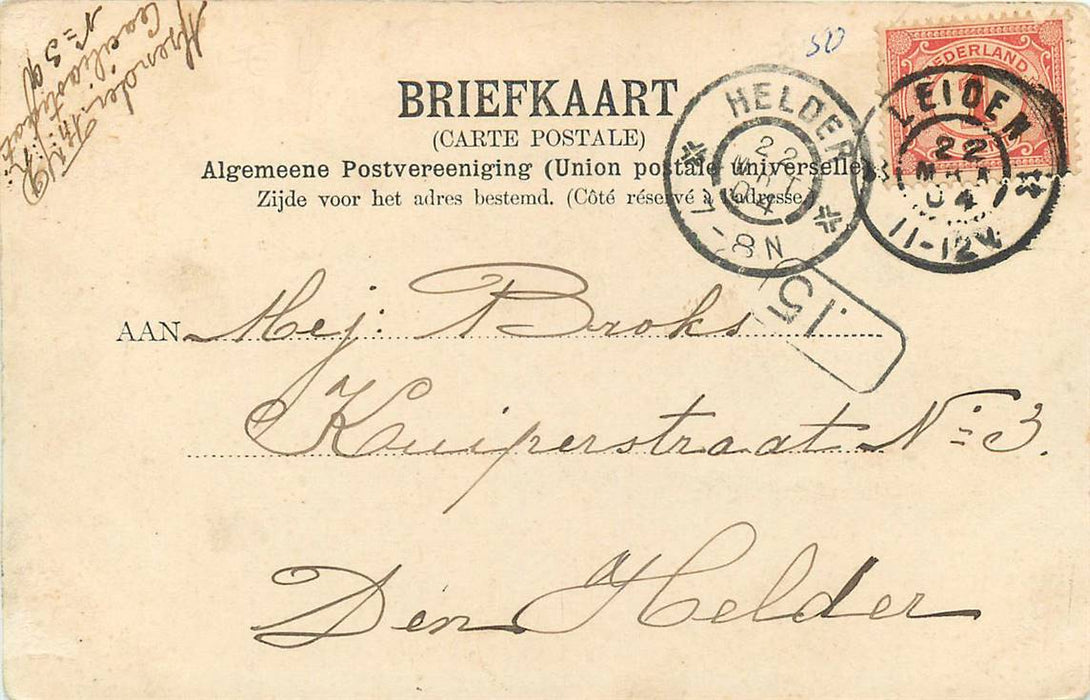 50
NEDERLAND
1
LEIDEN
22
MRT
04
11-12V
HELDER
22
MRT
04
7-8N
BRIEFKAART
(CARTE POSTALE)
Algemeene Postvereeniging (Union postale universelle)
Zijde voor het adres bestemd. (Côté réservé à l'adresse.)
15
AAN Mej: P Broks
Kuiperstraat No: 3.
Den Helder